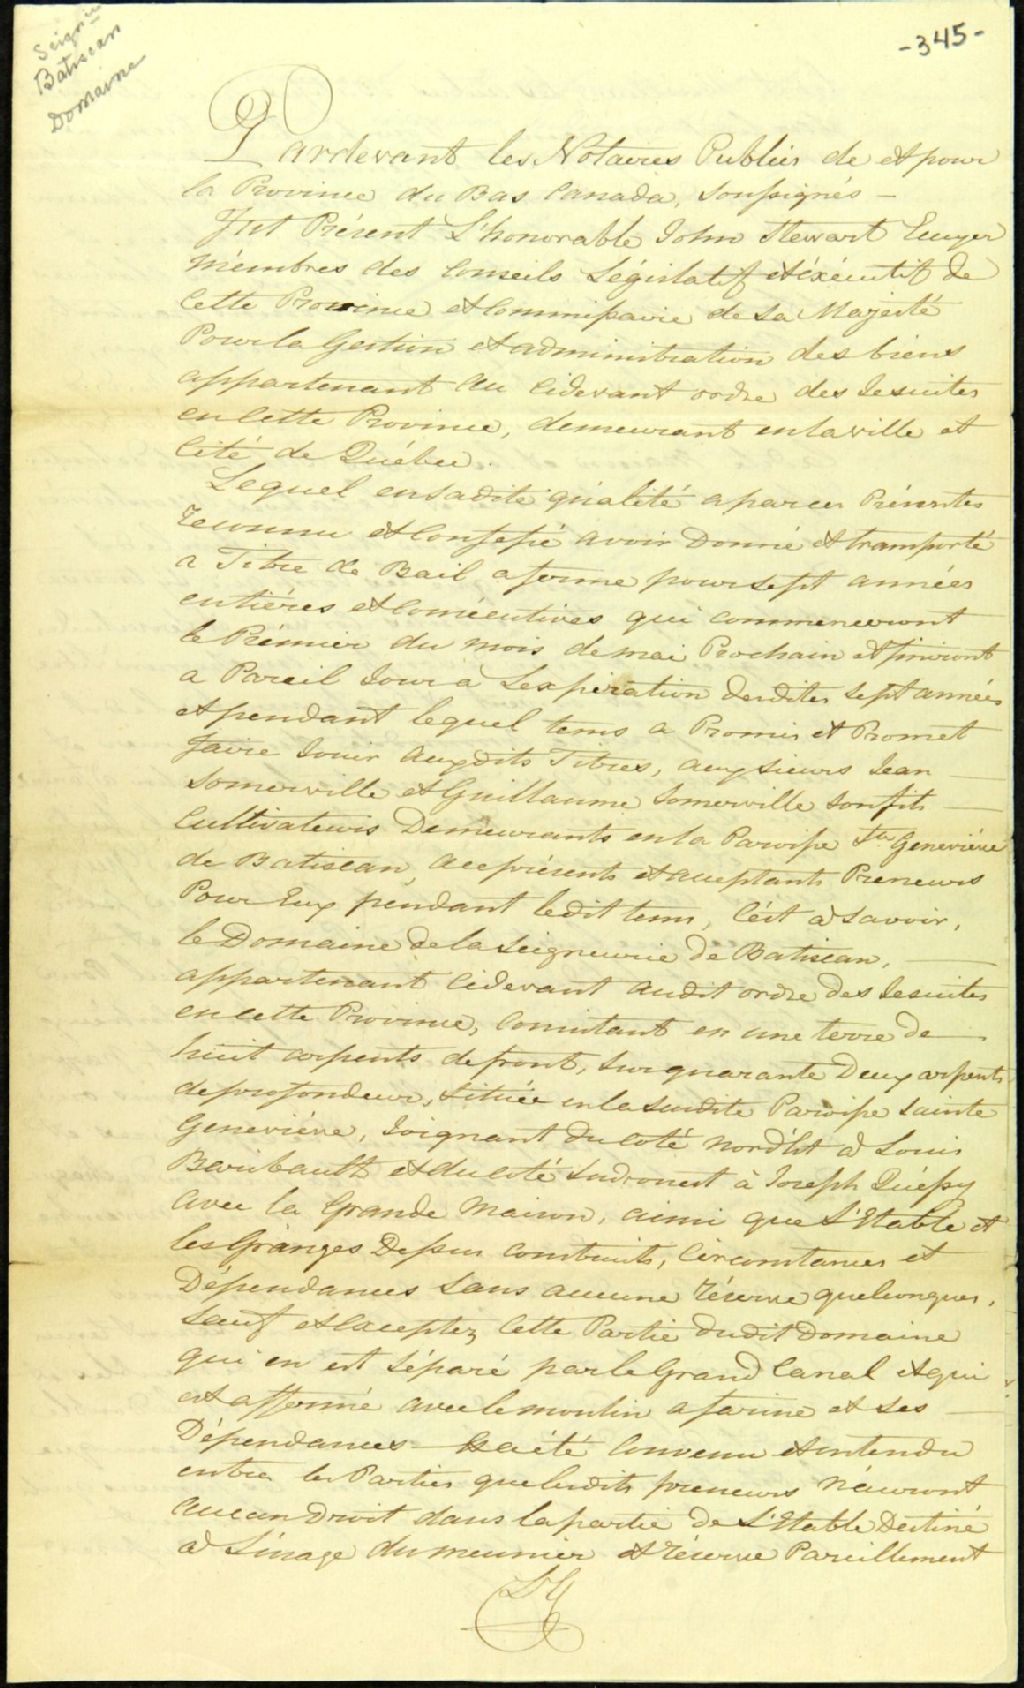 Seigrie
Batiscan
Domaine
-345-
Pardevant les Notaires Publics de et pour
la Province du Bas Canada, Soussignés —
Fut Présent L'honorable John Stewart Ecuyer
Membres des Conseils Législatif et éxécutif de
Cette Province et Commissaire de Sa Majesté
Pour la Gestion et administration des biens
appartenant au cidevant ordre des Jesuites
en Cette Province, demeurant en la ville et
Cité de Québec.
Lequel en Sadite qualité a par ces Présentes
reconnu et Confessé avoir Donné et transporté
a Titre de Bail a ferme pour sept années
entières et Consécutives qui commenceront
le Prémier du mois de mai Prochain et finiront
a Pareil Jour à L'expiration desdites Sept années
et pendant lequel tems a Promis et Promet
faire Jouir auxdits Titres, aux Sieurs Jean —
Somerville et Guillaume Somerville Son fils —
Cultivateurs Demeurants en la Paroisse Ste Geneviéve
de Batiscan, a ce présents et acceptants Preneurs
Pour Eux pendant ledit tems, C'est à Savoir,
le Domaine de la Seigneurie de Batiscan, —
appartenant Cidevant audit ordre Des Jesuites
en cette Province, Consistant en une terre de —
huit arpents de front, Sur quarante Deux arpents
de profondeur, Située en la Susdite Paroisse Sainte
Geneviéve, Joignant du Coté Nord'Est à Louis
Baribault et du Coté Sudrouest à Joseph Quéssy
avec la Grande Maison, ainsi que L'Etable et
les Granges Dessus Construits, Circonstances et
Dépendances Sans aucune réserve quelconques,
Sauf et Exceptez Cette Partie dudit Domaine
qui en est Séparé par le Grand Canal et qui
est affermé avec le moulin a farine et Ses —
Dépendances — a été Convenu et entendu
entre les Parties que lesdits preneurs N'auront
aucun Droit dans la partie de L'Etable Destiné
à L'usage du meunier et réservé Pareillement